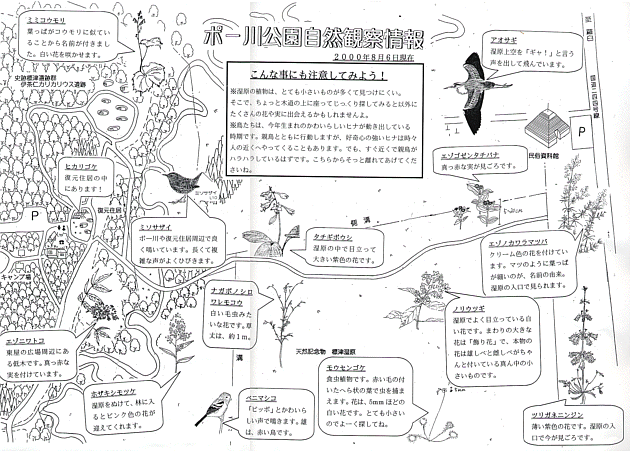 ポー川公園自然観察情報
2000年8月6日現在
ミミコウモリ
葉っぱがコウモリに似てい
ることから名前が付きまし
た。白い花を咲かせます。
史跡標津遺跡群
伊茶仁カリカリウス遺跡
こんな事にも注意してみよう！
※湿原の植物は、とても小さいものが多くて見つけにくい。
そこで、ちょっと木道の上に座ってじっくり探してみると以外に
たくさんの花や実に出会えるかもしれませんよ。
※鳥たちは、今年生まれのかわいらしいヒナが動き出している
時期です。親鳥とともに行動しますが、好奇心の強いヒナは時々
人の近くへやってくることもあります。でも、すぐ近くで親鳥が
ハラハラしているはずです。こちらからそっと離れてあげてくだ
さいね。
アオサギ
湿原上空を「ギャ！」と言う
声を出して飛んでいます。
P
民俗資料館
エゾゴゼンタチバナ
真っ赤な実が見ごろです。
ヒカリゴケ
復元住居の中
にあります！
復元住居
P
キャンプ場
ミソサザイ
ミソサザイ
ポー川や復元住居周辺で良
く鳴いています。長くて複
雑な声がよくひびきます。
タチギボウシ
湿原の中で目立って
大きい紫色の花です。
エゾノカワラマツバ
クリーム色の花を付けてい
ます。マツのように葉っぱ
が細いのが、名前の由来。
湿原の入口で見られます。
ナガボノシロ
ワレモコウ
白い毛虫みた
いな花です。草
丈は、約1m。
ノリウツギ
湿原でよく目立っている白
い花です。まわりの大きな
花は「飾り花」で、本物の
花は雄しべと雌しべがちゃ
んと付いている真ん中の小
さいものです。
エゾニワトコ
東屋の広場周辺にあ
る低木です。真っ赤な
実を付けています。
天然記念物 標津湿原
モウセンゴケ
食虫植物です。赤い毛の付
いたへら状の葉で虫を捕ま
えます。花は、5mmほどの
白い花です。とても小さい
のでよーく探してね。
5mm
ホザキシモツケ
湿原をぬけて、林に入
るとピンク色の花が
迎えてくれます。
溝
ベニマシコ
「ピッポ」とかわいら
しい声で鳴きます。雄
は、赤い鳥です。
ツリガネニンジン
薄い紫色の花です。湿原の入
口で今が見ごろです。